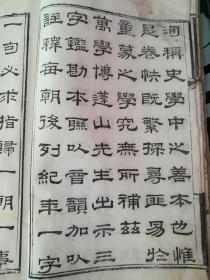 洵稱史學中之善本也惟
是卷帙既繁探尋匪易於
童蒙之學究無所補茲
萬學博蓬山先生出示三
字鑑勘本聯以音韻加以
註釋每朝後列紀年一字
一句必求指歸一朝一事